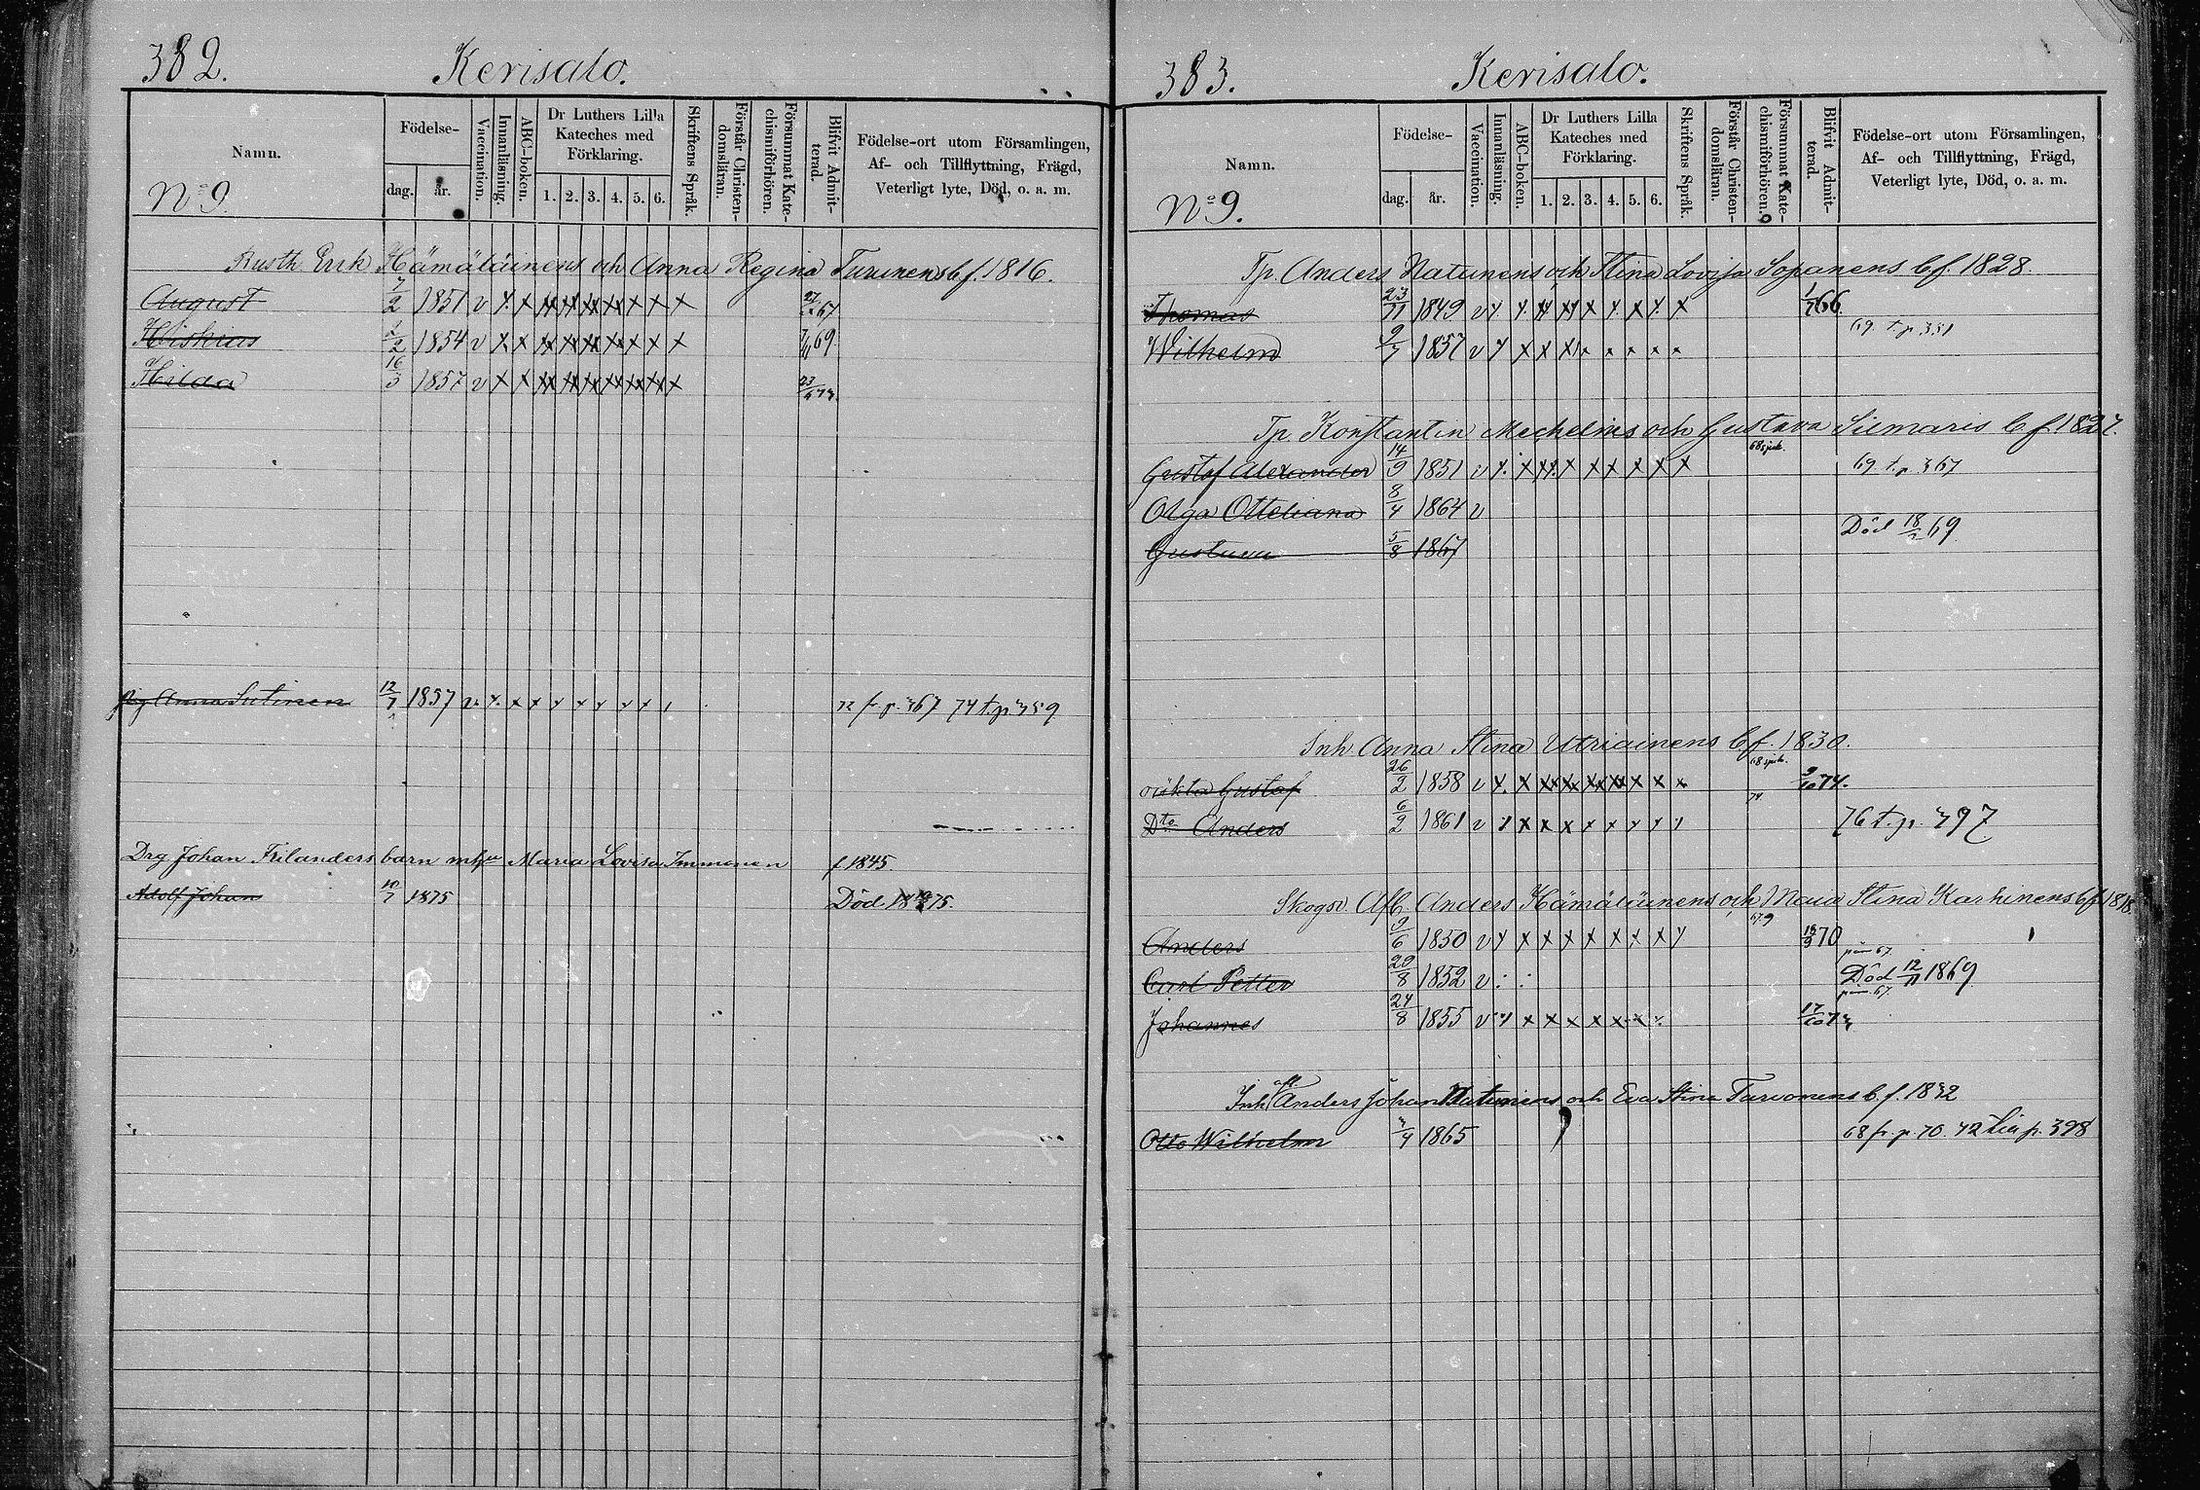 382. Kerisalo.
Namn. Födelse- dag. år. Vaccination. Innanläsning. ABC-boken. Dr Luthers Lilla Kateches med Förklaring. 1. 2. 3. 4. 5. 6. Skriftens Språk. Förstår Christen-domsläran. Försummat Kate-chismiförhören. Blifvit Admit-terad. Födelse-ort utom Församlingen, Af- och Tillflyttning, Frägd, Veterligt lyte, Död, o. a. m.
No 9.
Rusth Erik Hämäläinens och Anna Regina Turunens b. f. 1816.
August 7/2 1851 v x x x x x x x x x 67
Hiskias 1/2 1854 v x x x x x x x x x 7/11 69
Hilda 16/3 1857 v x x x x x x x x x
Pig Anna Sutinen 12/7 1857 v x x x x x x x 72 fr. p. 367 74 t. p. 359
Drg Johan Frilanders barn mhu Maria Lovisa Immonen f. 1845.
Adolf Johan 10/7 1875 Död 75.
383. Kerisalo.
Namn. Födelse- dag. år. Vaccination. Innanläsning. ABC-boken. Dr Luthers Lilla Kateches med Förklaring. 1. 2. 3. 4. 5. 6. Skriftens Språk. Förstår Christen-domsläran. Försummat Kate-chismiförhören. Blifvit Admit-terad. Födelse-ort utom Församlingen, Af- och Tillflyttning, Frägd, Veterligt lyte, Död, o. a. m.
No 9.
Tp. Anders Natunens och Stina Lovisa Sopanens b. f. 1828.
Thomas 23/11 1849 v x x x x x x x x x 1/7 66.
69. t. p. 351
Wilhelm 9/7 1857 v x x x x x x x x x
Tp. Konstantin Mechelins och Gustava Siemaris b. f. 1827.
68 sjuk.
Gustaf Alexander 14/9 1851 v x x x x x x x x x 69 t. p. 367
Olga Otteliana 8/4 1864 v
Död 18/2 69
Gustava 5/8 1867
Inh. Anna Stina Utriainens b. f. 1830.
68 sjuk.
oäkta Gustaf 26/2 1858 v x x x x x x x x x 9/10 74.
74.
Dto Anders 6/2 1861 v x x x x x x x x x 76 t. p. 397
Skogsv. Afl. Anders Hämäläinens och Maia Stina Karhinens b. f. 1818.
Anders 3/6 1850 v x x x x x x x x x 18/9 70
Carl Petter 20/8 1852 v Död 12/11 1869
Johannes 24/8 1855 v x x x x x x x x 17/10
Inh. afl. Anders Johan Natunens och Eva Stina Turvonens b. f. 1832
Otto Wilhelm 3/4 1865 68 fr. p. 70. 72 till p. 398